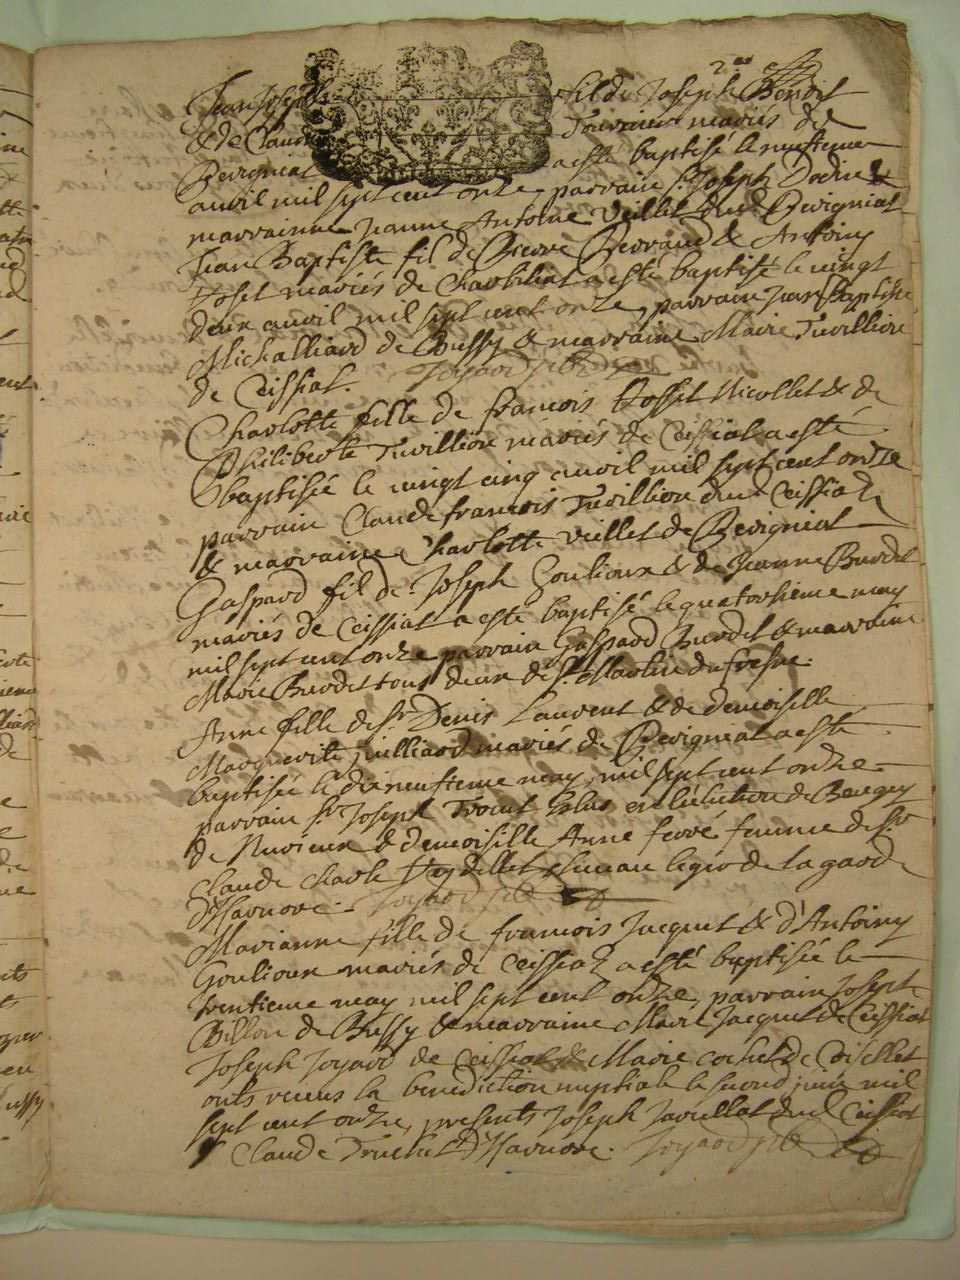 Jean Joseph fil de Joseph Benoit
& de Claudine Tournier mariés de
Revigniat a esté baptisé le neuftieme
avril mil sept cent onze parrain Joseph
marrainne Jeanne Antoine Veillet dud Revigniat
Jean Baptiste fil de Pierre Perraud & Antoiny
Vosset mariés de Charbiliat a esté baptisé le vingt
deux avril mil sept cent onze, parrain Jean Baptiste
Michalliard de Bussy & marraine Marie Tuvillion
de Ceissiat. Joyard
Charlotte fille de francois Vosset Nicollet & de
Philiberte Tuvillion mariés de Ceissiat a esté
baptisée le vingt cinq avril mil sept cent onze
parrain Claude francois Tuvillion dud Ceissiat
& marraine Charlotte Veillet de Revigniat
Gaspard fil de Joseph Goulioux & de Jeanne Burdet
mariés de Ceissiat a esté baptisé le quatorsieme may
mil sept cent onze parrain Gaspard Burdet & marraine
Marie Burdet tous deux de St Martin du fresne.
Anne fille de Sr Denis Laurent & de demoiselle
Marguerite Juilliard mariés de Revigniat a esté
baptisée le dix neuftieme may mil sept cent onze
parrain Sr Joseph en l'election de Beugey
de & demoiselle Anne ferré femme de Sr
Claude Charle de la garde
d'Havuore. Joyard
Marianne fille de francois Jacquet & d'Antoiny
Goulioux mariés de Ceissiat a esté baptisée le
trentieme may mil sept cent onze, parrain Joseph
Billon de Bussy & marraine Marie Jacquet de Ceissiat
Joseph Joyard de Ceissiat & Marie Cochet de Coisellet
onts receus la benediction nuptiale le second juin mil
sept cent onze, presents Joseph Javillat dud Ceissiat
Claude Truchet d'Havuore. Joyard